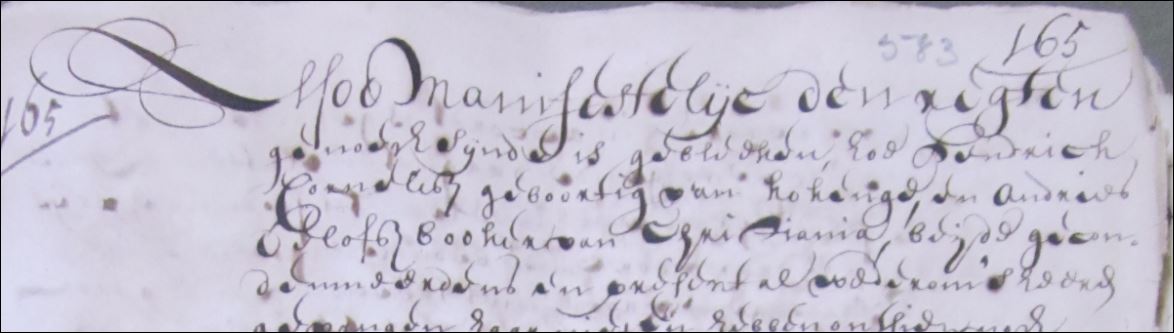 583 165
165
Alsoo Manifestelijc den regten
genoech synde is gebleeken, hoe Hendrick
Cornelisz geboortig van Kokenge, en Andries
Oelofsz booker van Christiania, beijde gecon-
demneerdens en present al wederom 's heeren
gevangen